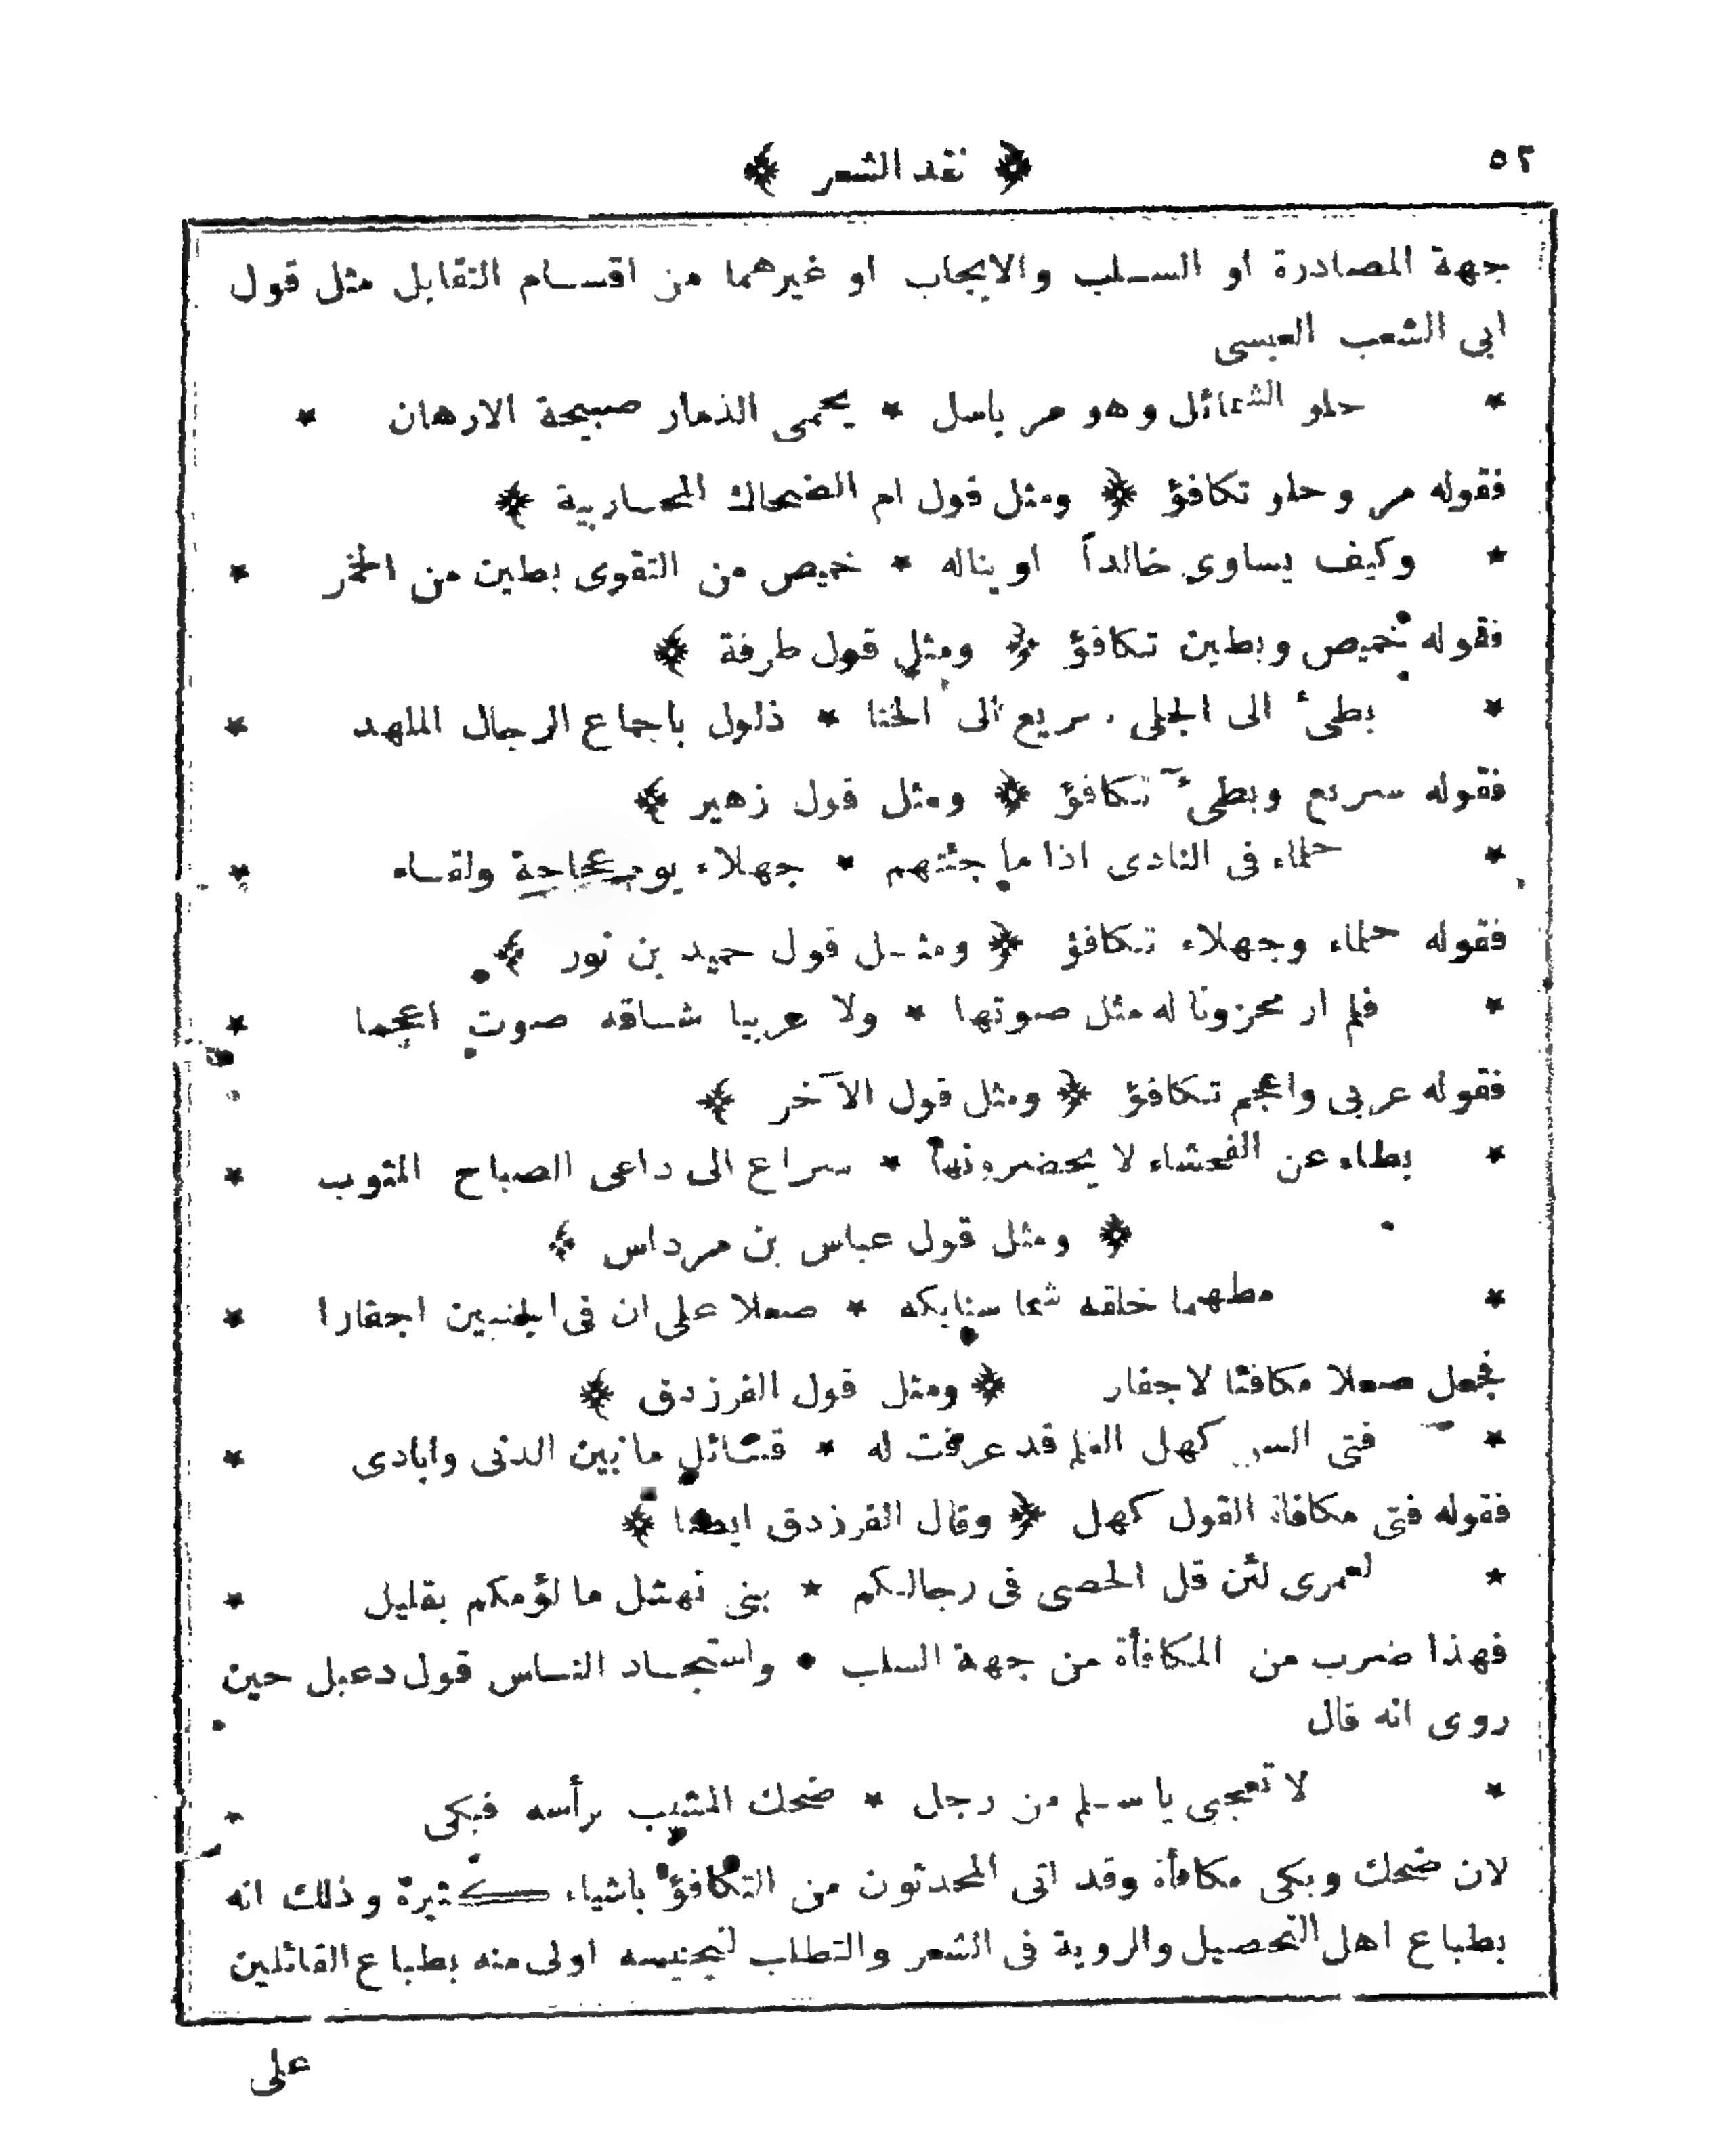 ٥٢ ﴿ نقد الشعر ﴾
جهة المصادرة او السلب والايجاب او غيرهما من اقسام التقابل مثل قول
ابى الشعب العبسى
* حلو الشمائل وهو مر باسل * يحمى الذمار صبيحة الارهان *
فقوله مر وحلو تكافؤ ﴿ ومثل قول ام الضحاك المحاربية ﴾
* وكيف يساوى خالداً او يناله * خميص من التقوى بطين من الخمر *
فقوله خميص وبطين تكافؤ ﴿ ومثل قول طرفة ﴾
* بطئ الى الجلى سريع الى الخنا * ذلول باجماع الرجال الملهد *
فقوله سريع وبطئ تكافؤ ﴿ ومثل قول زهير ﴾
* حلماء فى النادى اذا ما جئتهم * جهلاء يوم عجاجة ولقاء *
فقوله حلماء وجهلاء تكافؤ ﴿ ومثل قول حميد بن نور ﴾
* فلم ار محزونا له مثل صوتها * ولا عربيا شاقه صوت اعجما *
فقوله عربى واعجم تكافؤ ﴿ ومثل قول الآخر ﴾
* بطاء عن الفحشاء لا يحضرونها * سراع الى داعى الصباح المثوب *
﴿ ومثل قول عباس بن مرداس ﴾
* مطهما خلقه شما سنابكه * صعلا على ان فى الجنبين اجفارا *
فجعل صعلا مكافئا لاجفار ﴿ ومثل قول الفرزدق ﴾
* فتى السن كهل الفلم قد عرفت له * قبائل ما بين الدنى وايادى *
فقوله فتى مكافاة القول كهل ﴿ وقال الفرزدق ايضا ﴾
* لعمرى لئن قل الحصى فى رجالكم * بنى نهشل ما لؤمكم بقليل *
فهذا ضرب من المكافأة من جهة السلب • واستجاد الناس قول دعبل حين
روى انه قال
* لا تعجبى يا سلم من رجل * ضحك المشيب برأسه فبكى *
لان ضحك وبكى مكافأة وقد اتى المحدثون من التكافؤ باشياء كثيرة وذلك انه
بطباع اهل التحصيل والروية فى الشعر والتطلب لتجنيسه اولى منه بطباع القائلين
على